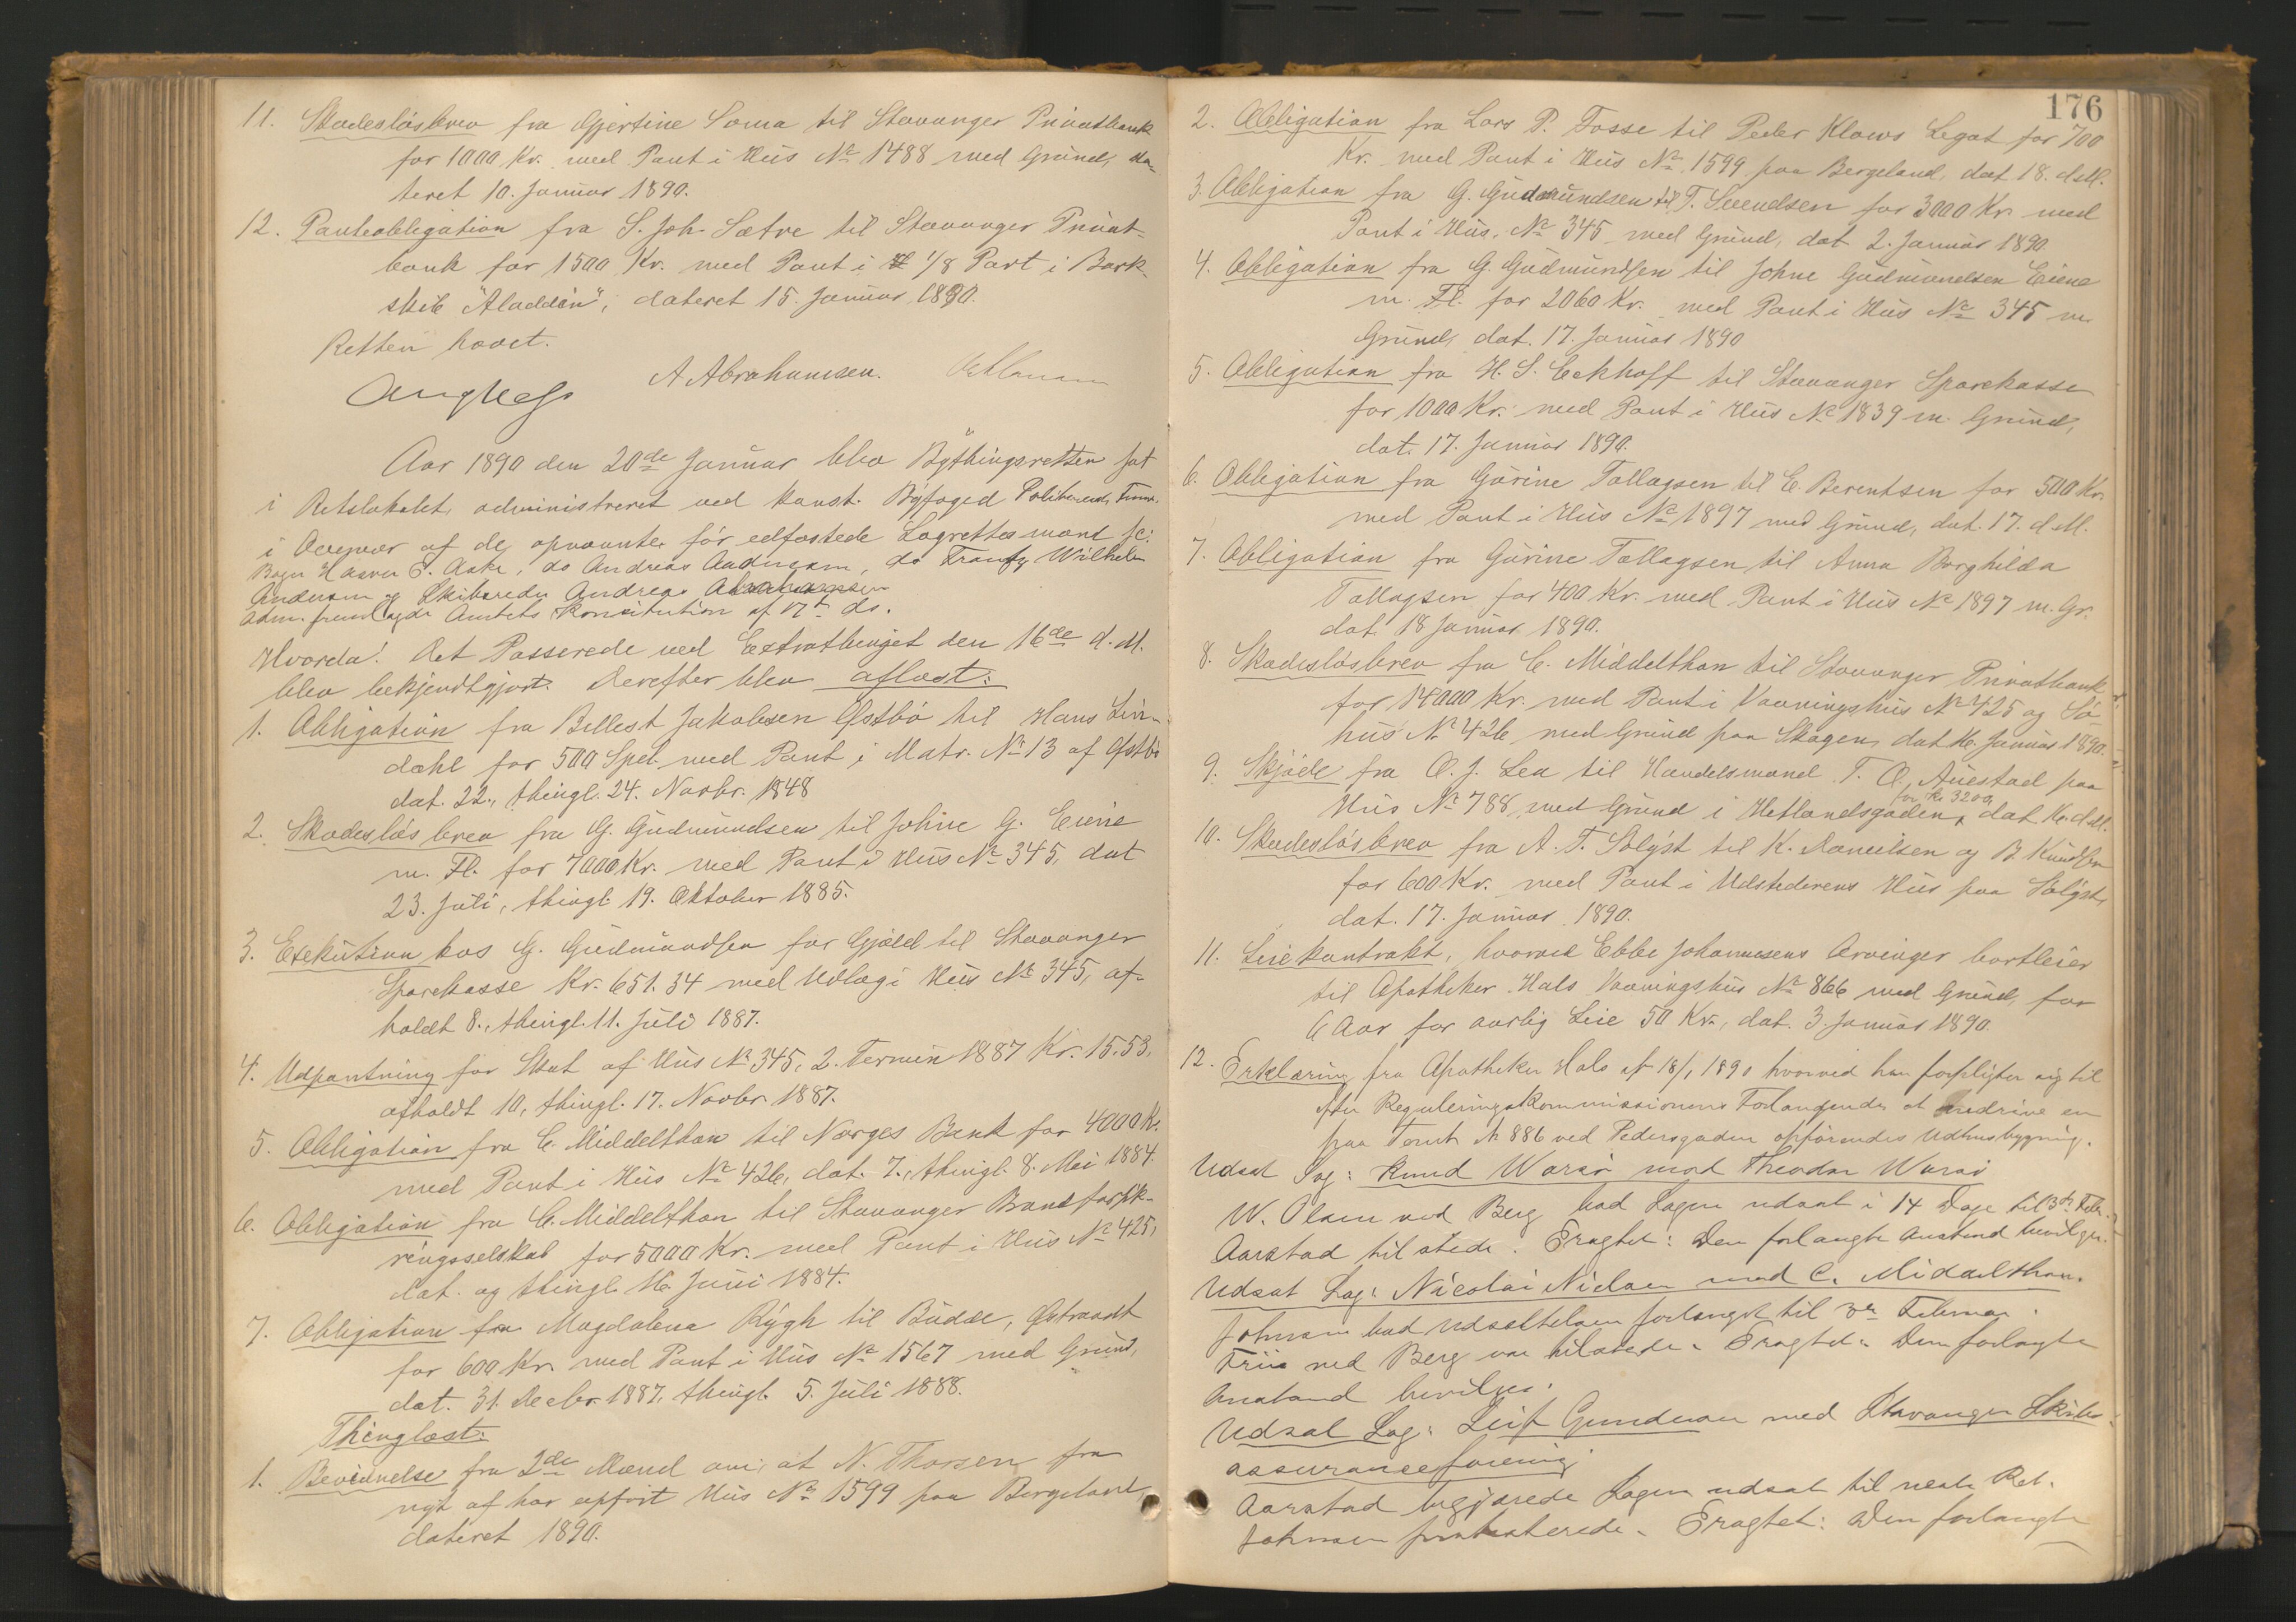 11. Skadesløsbrev fra Gjertine Soma til Stavanger Privatbank
for 1000 Kr. med Pant i Hus No 1488 med Grund, da-
teret 10. Januar 1890.
12. Panteobligation fra S. Joh. Sætre til Stavanger Privat-
bank for 1500 Kr. med Pant i 1/8 Part i Bark-
skib "Aladdin", dateret 15. Januar 1890.
Retten hævet.
A Abrahamsen.
Aar 1890 den 20de Januar blev Bythingsretten sat
i Retslokalet, administreret ved konst. Byfoged
i Overvær af de opnævnte, før edfæstede Lagrettesmænd
P. Aske, do Andreas Andersen, do Wilhelm
Andersen og Skibsreder Andreas Abrahamsen
Adm. fremlagde Amtets Konstitution af 17de ds.
Hvorda: Det Passerede ved Extrathinget den 16de d. M.
blev bekjendtgjort. Derefter blev aflæst:
1. Obligation fra Bellest Jakobsen Østbø til Hans Lin-
dahl for 500 Spd. med Pant i Matr. No 13 af Østbø
dat. 22., thingl. 24. Novbr. 1848
2. Skadesløsbrev fra G. Gudmundsen til Johne G. Eiene
m. Fl. for 7000 Kr. med Pant i Hus No 345, dat
23. Juli, thingl. 19. Oktober 1885.
3. Exekution hos G. Gudmundsen for Gjæld til Stavanger
Sparekasse Kr. 651.34 med Udlæg i Hus No 345, af-
holdt 8., thingl. 11. Juli 1887.
4. Udpantning for Skat af Hus No 345, 2. Termin 1887 Kr. 15.53,
afholdt 10, thingl. 17. Novbr. 1887.
5. Obligation fra C. Middelthon til Norges Bank for 4000 Kr.
med Pant i Hus No 426, dat. 7., thingl. 8. Mai 1884.
6. Obligation fra C. Middelthon til Stavanger Brandforsik-
ringsselskab for 5000 Kr. med Pant i Hus No 425,
dat. og thingl. 16. Juni 1884.
7. Obligation fra Magdalena Rygh til Budde, Østraadt
for 600 Kr. med Pant i Hus No 1567 med Grund,
dat. 31. Decbr. 1887, thingl. 5. Juli 1888.
Thinglæst:
1. Bevidnelse fra 2de Mænd om, at N. Thorsen fra
nyt af har opført Hus No 1599 paa Bergeland
dateret 1890.
176
2. Obligation fra Lars P. Fosse til Peder Klows Legat for 700
Kr. med Pant i Hus No 1599 paa Bergeland, dat. 18. d. M.
3. Obligation fra G. Gudmundsen til T. Svendsen for 3000 Kr. med
Pant i Hus No 345 med Grund, dat 2. Januar 1890
4. Obligation fra G. Gudmundsen til Johne Gudmundsen Eiene
m. Fl. for 2060 Kr. med Pant i Hus No 345 m
Grund, dat. 17. Januar 1890
5. Obligation fra H. S. Eckhoff til Stavanger Sparekasse
for 1000 Kr. med Pant i Hus No 1839 m. Grund,
dat. 17. Januar 1890.
6. Obligation fra Gurine Tallagsen til E. Berentsen for 500 Kr.
med Pant i Hus No 1897 med Grund, dat. 17. d. M.
7. Obligation fra Gurine Tallagsen til Anna Borghilda
Tallagsen for 400 Kr. med Pant i Hus No 1897 m. Gr.
dat 18 Januar 1890.
8. Skadesløsbrev fra C. Middelthon til Stavanger Privatbank
for 14000 Kr. med Pant i Vaaningshus No 425 og Sø-
hus No 426 med Grund paa Skagen, dat. 16. Januar 1890.
9. Skjøde fra O. J. Lea til Handelsmand T. O. Auestad paa
for Kr 3200
Hus No 788 med Grund i Hetlandsgaden, dat. 16. d. M.
10. Skadesløsbrev fra A. T. Solyst til K. Danielsen og B. Knudsen
for 600 Kr. med Pant i Udstederens Hus paa Solyst,
dat. 17. Januar 1890.
11. Leiekontrakt, hvorved Ebbe Johannesens Arvinger bortleier
til Apotheker Hals Vaaningshus No 866 med Grund, for
6 Aar for aarlig Leie 50 Kr., dat. 3 Januar 1890.
12. Erklæring fra Apotheker Hals af 18/1 1890 hvorved han forpligter sig til
efter Reguleringskommissionens Forlangende at nedrive en
paa Tomt No 886 ved Pedersgaden opførendes Udhusbygning.
Udsat Sag: Knud Warsø mod Theodor Warsø
W. Olsen ved Berg bad Sagen udsat i 14 Dage til 3de Febr.
Aarstad tilstede. Eragtet: Den forlangte Anstand bevilges.
Udsat Sag: Nicolai Nielsen mod C. Middelthon.
Johnsen bad Udsættelsen forlænget til Februar.
Friis ved Berg var tilstede. Eragtet: Den forlangte
Anstand bevilges.
Udsat Sag: Leif Gundersen mod Stavanger Skibs-
assuranceforening
Aarstad begjærede Sagen udsat til neste Ret.
Johnsen protesterede. Eragtet: Den forlangte